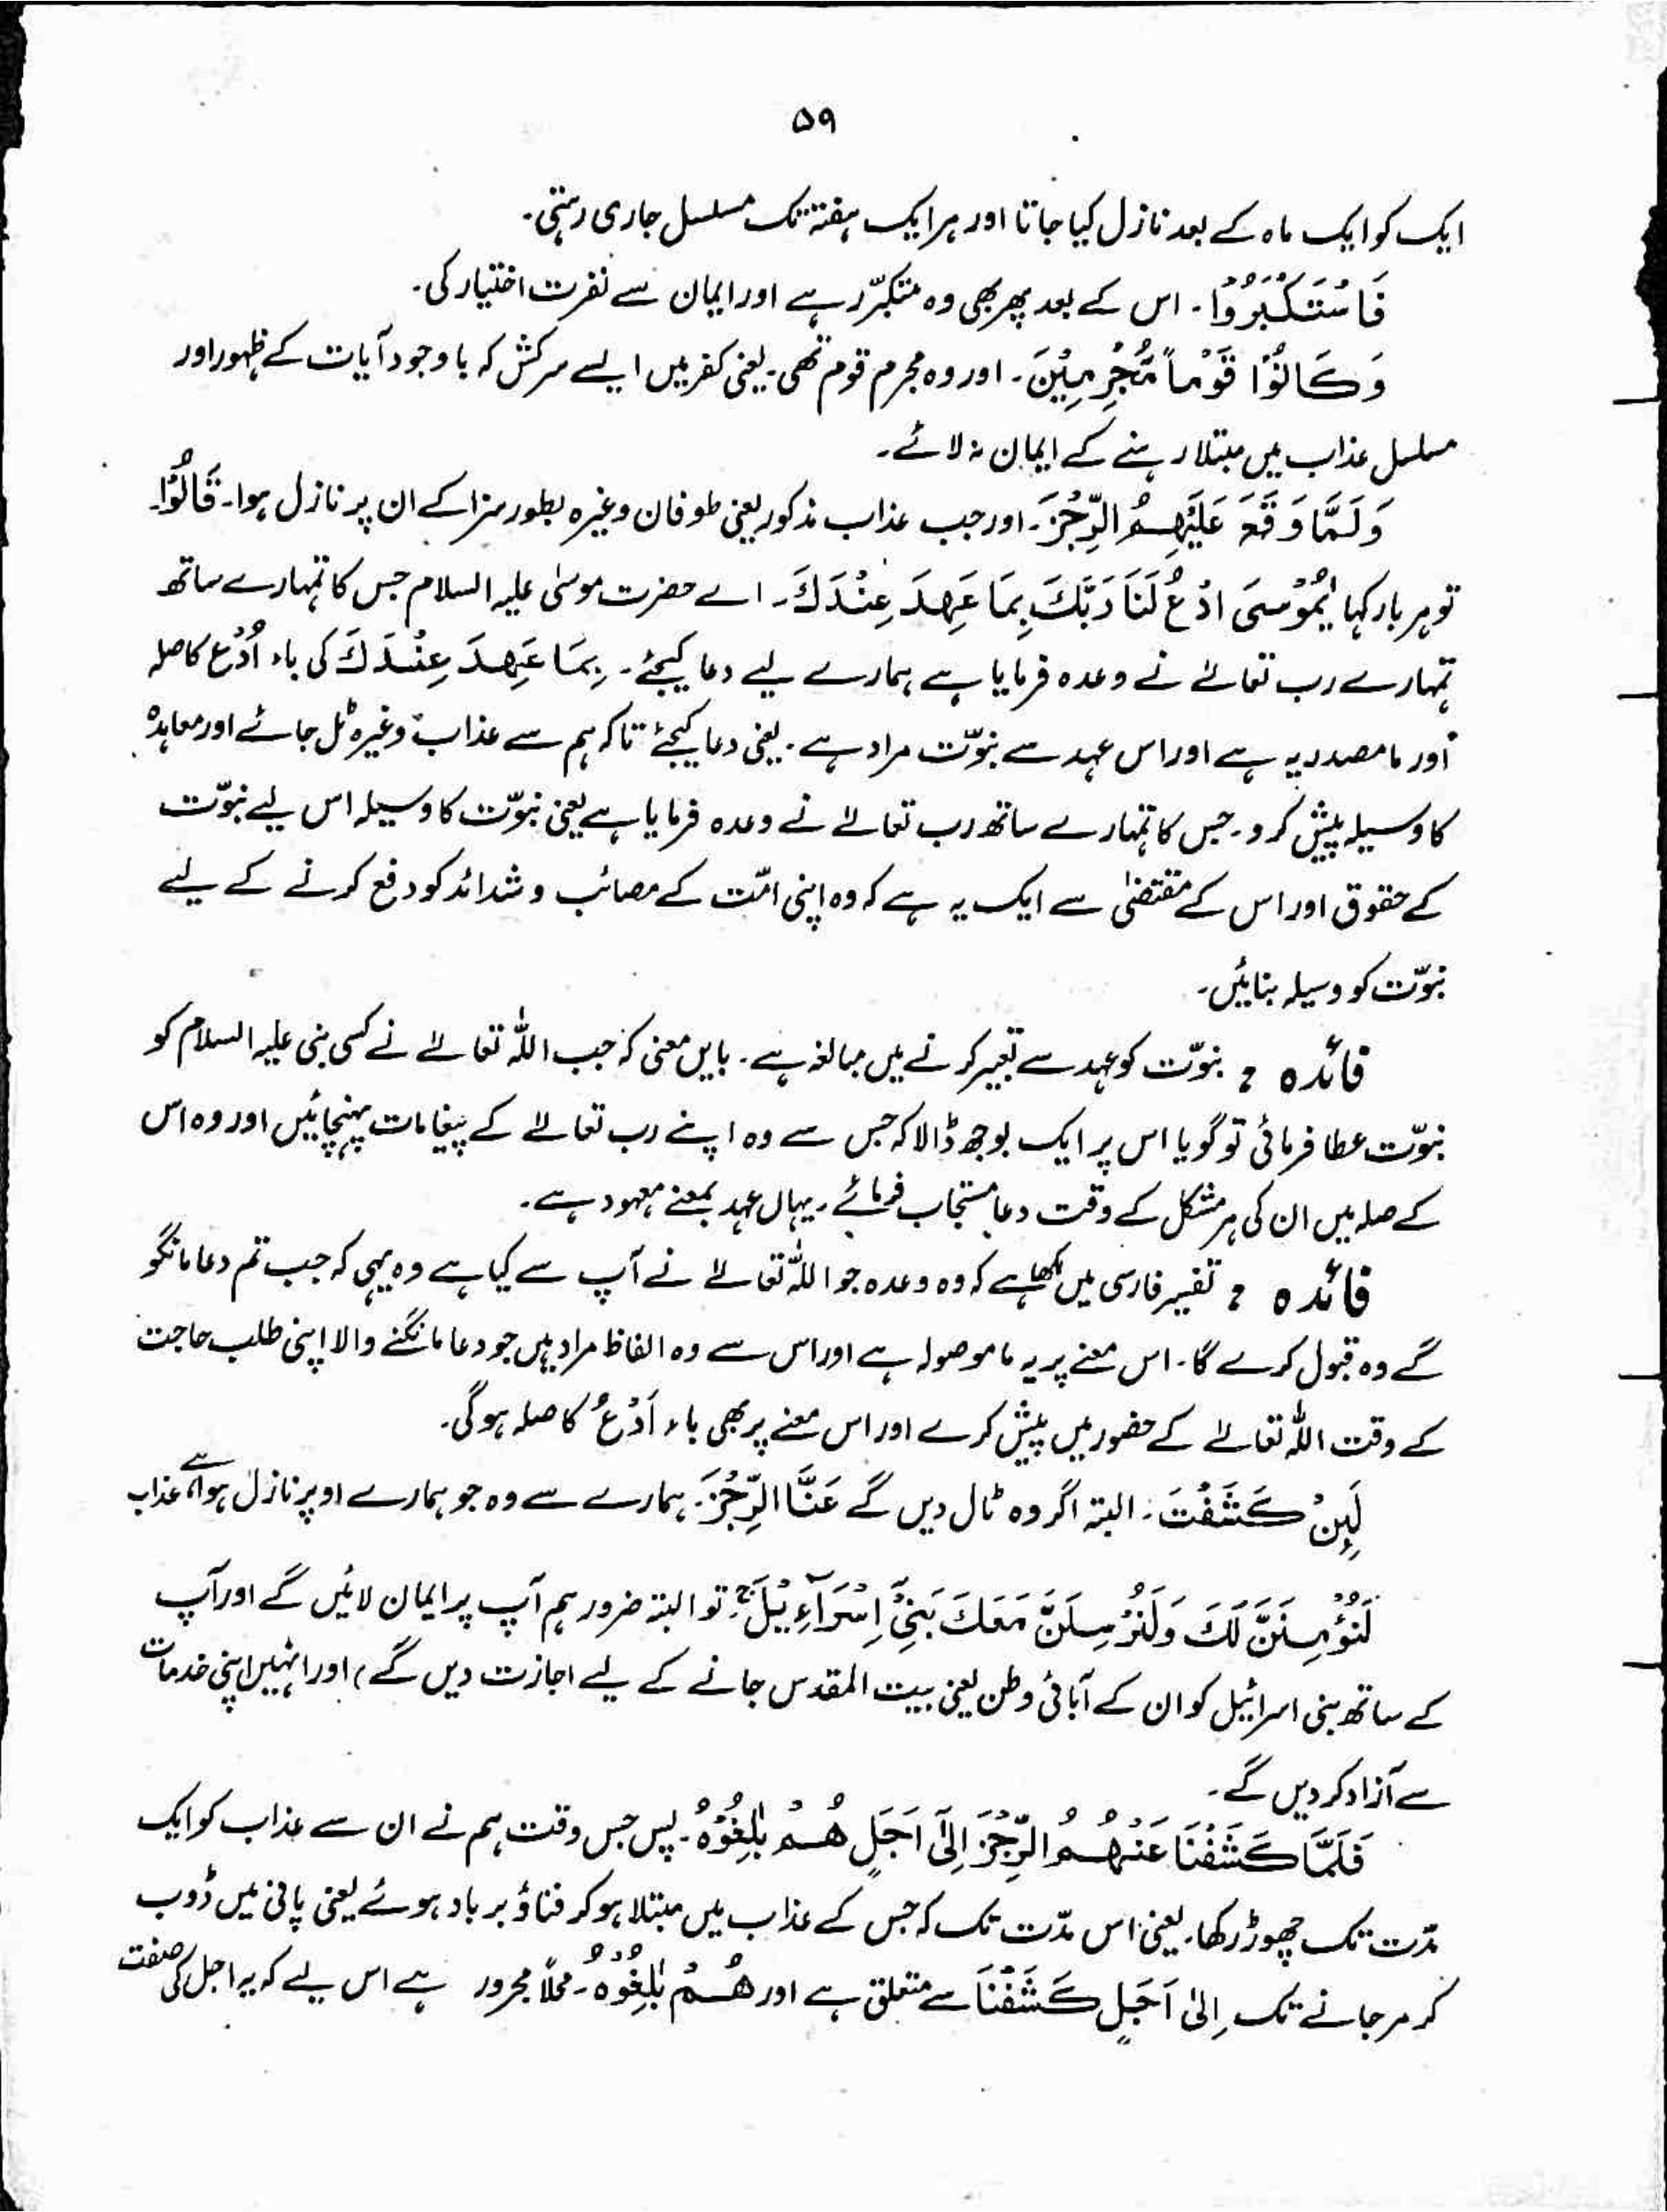 ۵۹
ایک کو ایک ماہ کے بعد نازل کیا جاتا اور ہر ایک ہفتہ تک مسلسل جاری رہتی۔
فَاسْتَكْبَرُوْا۔ اس کے بعد پھر بھی وہ متکبّر رہے اور ایمان سے نفرت اختیار کی۔
وَكَانُوْا قَوْماً مُّجْرِمِيْنَ۔ اور وہ مجرم قوم تھی۔ یعنی کفر میں ایسے سرکش کہ باوجود آیات کے ظہور اور
مسلسل عذاب میں مبتلا رہنے کے ایمان نہ لائے۔
وَلَمَّا وَقَعَ عَلَيْهِمُ الرِّجْزُ۔ اور جب عذاب مذکور یعنی طوفان وغیرہ بطور سزا کے ان پر نازل ہوا۔ قَالُوْا۔
تو ہر بار کہا يٰمُوْسَى ادْعُ لَنَا رَبَّكَ بِمَا عَهِدَ عِنْدَكَ۔ اے حضرت موسیٰ علیہ السلام جس کا تمہارے ساتھ
تمہارے رب تعالےٰ نے وعدہ فرمایا ہے ہمارے لیے دعا کیجئے۔ بِمَا عَهِدَ عِنْدَكَ کی باء اُدْعُ کا صلہ
اور ما مصدریہ ہے اور اس عہد سے نبوّت مراد ہے۔ یعنی دعا کیجئے تاکہ ہم سے عذاب وغیرہ ٹل جائے اور معاہدہ
کا وسیلہ پیش کرو۔ جس کا تمہارے ساتھ رب تعالےٰ نے وعدہ فرمایا ہے یعنی نبوّت کا وسیلہ اس لیے نبوّت
کے حقوق اور اس کے مقتضٰی سے ایک یہ ہے کہ وہ اپنی امّت کے مصائب و شدائد کو دفع کرنے کے لیے
نبوّت کو وسیلہ بنائیں۔
فائدہ : نبوّت کو عہد سے تعبیر کرنے میں مبالغہ ہے۔ بایں معنی کہ جب اللہ تعالےٰ نے کسی نبی علیہ السلام کو
نبوّت عطا فرمائی تو گویا اس پر ایک بوجھ ڈالا کہ جس سے وہ اپنے رب تعالےٰ کے پیغامات پہنچائیں اور وہ اس
کے صلہ میں ان کی ہر مشکل کے وقت دعا مستجاب فرمائے۔ یہاں عہد بمعنے معہود ہے۔
فائدہ : تفسیر فارسی میں لکھا ہے کہ وہ وعدہ جو اللہ تعالےٰ نے آپ سے کیا ہے وہ یہی کہ جب تم دعا مانگو
گے وہ قبول کرے گا۔ اس معنے پر یہ ما موصولہ ہے اور اس سے وہ الفاظ مراد ہیں جو دعا مانگنے والا اپنی طلب حاجت
کے وقت اللہ تعالےٰ کے حضور میں پیش کرے اور اس معنے پر بھی باء اَدْعُ کا صلہ ہوگی۔
لَئِنْ كَشَفْتَ۔ البتہ اگر وہ ٹال دیں گے عَنَّا الرِّجْزَ۔ ہمارے سے وہ جو ہمارے اوپر نازل ہوا ہے عذاب
لَنُؤْمِنَنَّ لَكَ وَلَنُرْسِلَنَّ مَعَكَ بَنِيْٓ اِسْرَآءِيْلَ ۚ تو البتہ ضرور ہم آپ پر ایمان لائیں گے اور آپ
کے ساتھ بنی اسرائیل کو ان کے آبائی وطن یعنی بیت المقدس جانے کے لیے اجازت دیں گے، اور انہیں اپنی خدمات
سے آزاد کر دیں گے۔
فَلَمَّا كَشَفْنَا عَنْهُمُ الرِّجْزَ اِلٰٓى اَجَلٍ هُمْ بٰلِغُوْهُ۔ پس جس وقت ہم نے ان سے عذاب کو ایک
مدّت تک چھوڑ رکھا۔ یعنی اس مدّت تک کہ جس کے عذاب میں مبتلا ہو کر فنا ؤ برباد ہوئے یعنی پانی میں ڈوب
کر مر جانے تک۔ اِلیٰ اَجَلٍ كَشَفْنَا سے متعلق ہے اور هُمْ بٰلِغُوْهُ۔ محلاً مجرور ہے اس لیے کہ یہ اجل کی صفت